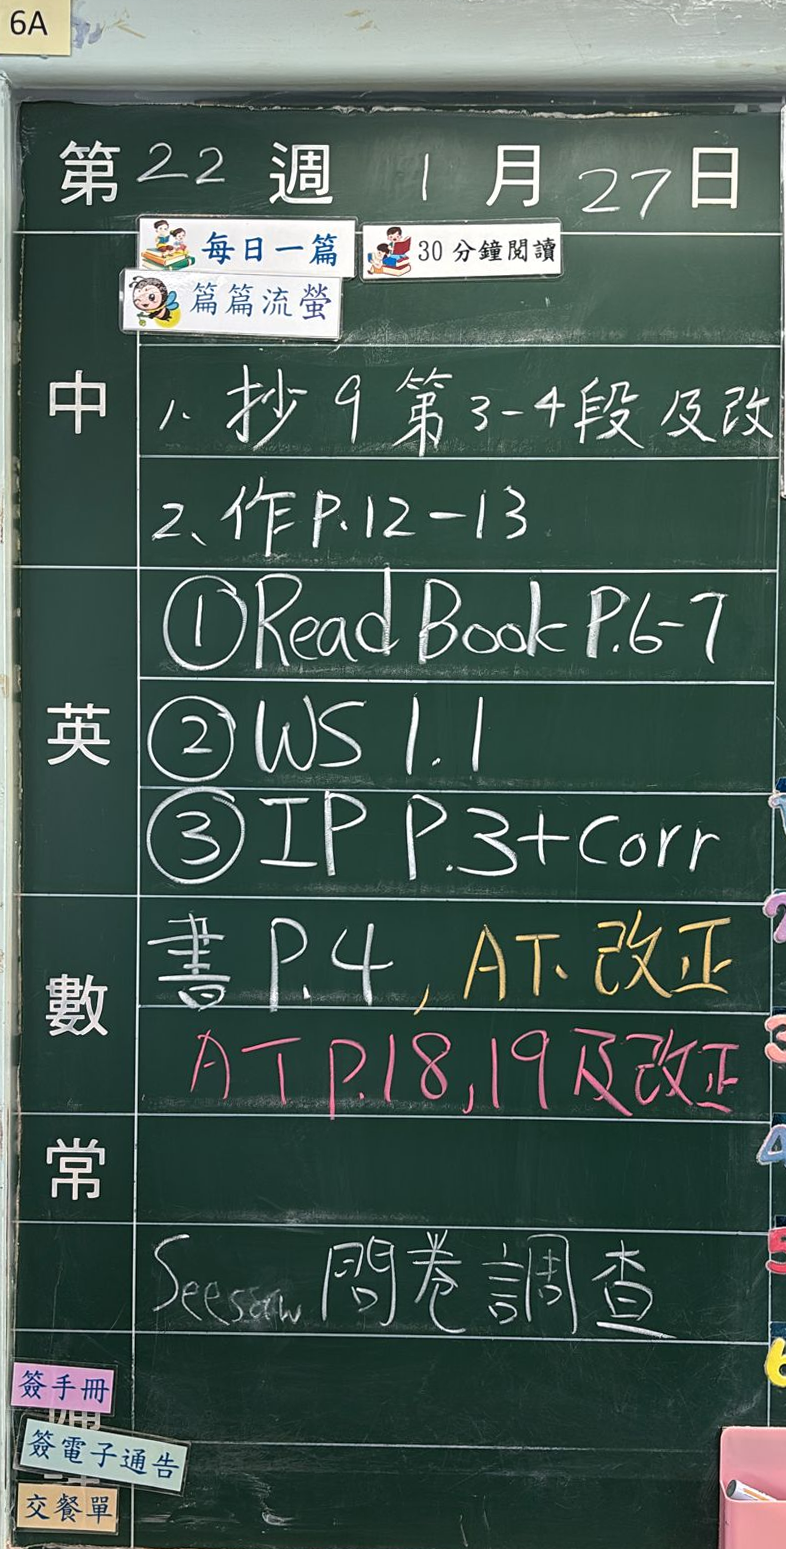 6A
第22週 1月27日
每日一篇 30分鐘閱讀
篇篇流螢
中
1. 抄9第3-4段及改
2、作P.12-13
英
①Read Book P.6-7
②WS 1.1
③IP P.3+Corr
數
書P.4, AT、改正
AT P.18,19及改正
常
Seesaw 問卷調查
簽手冊
簽電子通告
交餐單
1
2
3
4
5
6